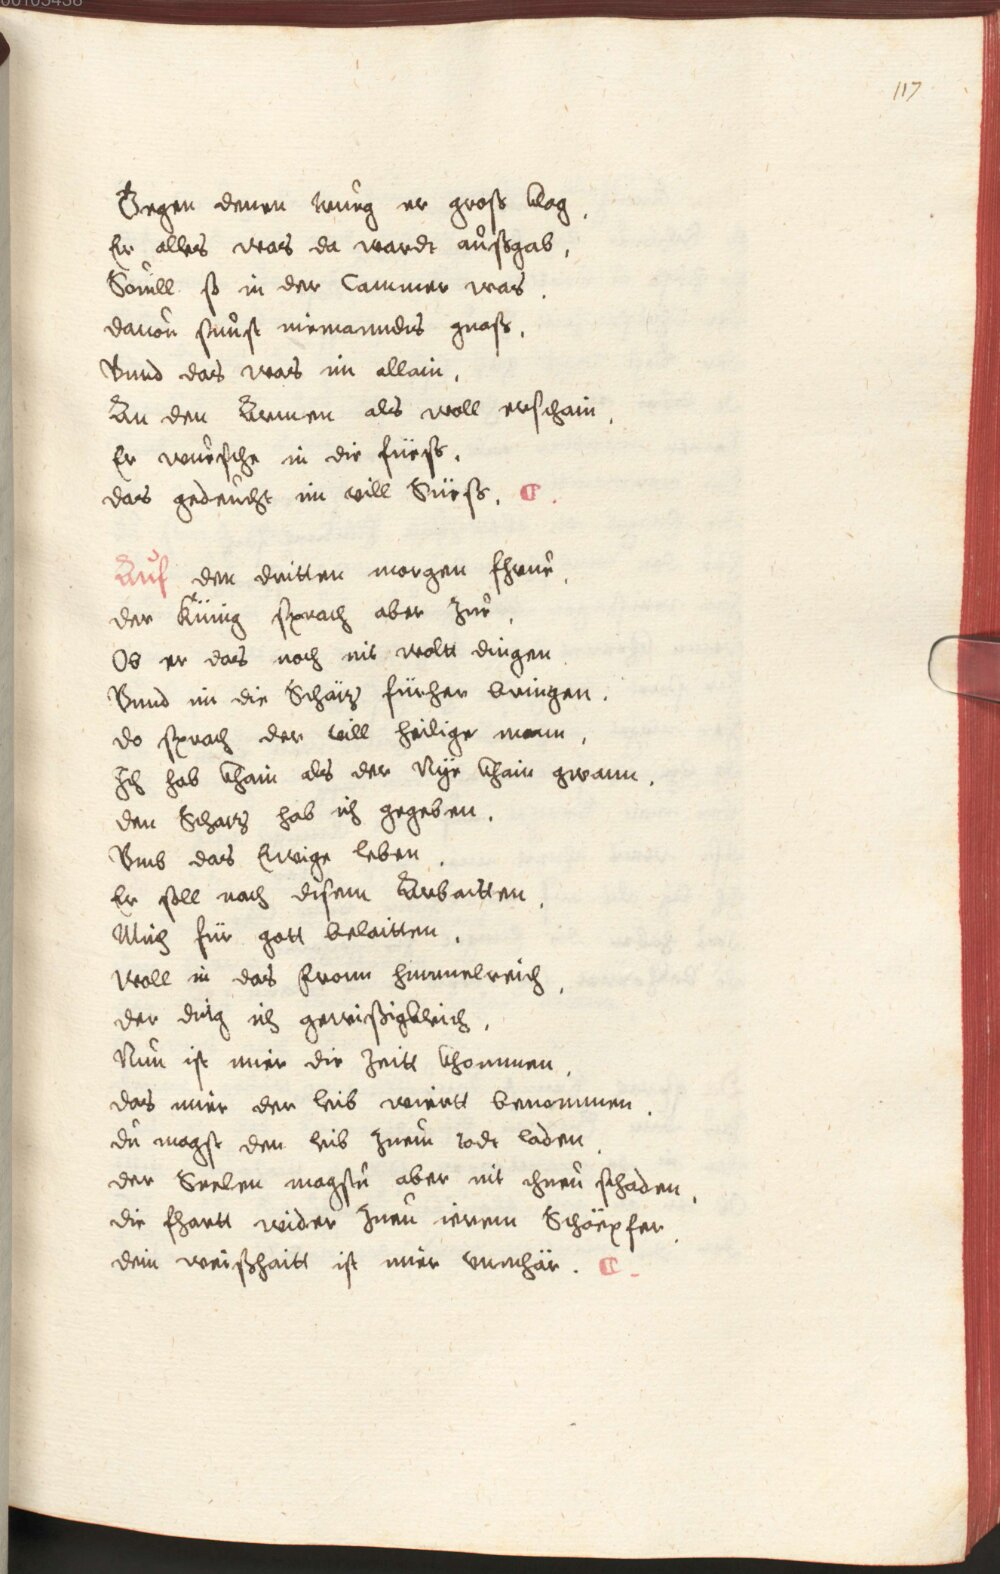 00105438
117
Gegen denen trueg er gross klag,
Er alles was da wardt außgab,
Souill ß in der Cammer was,
dauon sunst niemanndts gnoss,
Vnnd das was im allain,
An den Armen als woll erschain,
Er wuesche in die füess,
das gedeucht im vill Süess,
Auf den dritten morgen fhrue,
der Künig sprach aber zue,
Ob er das noch nit woltt dingen
Vnnd im die Schätz fürher bringen.
do sprach der vill heilige mann,
Ich hab khain als der Nye khain gwann,
den Schatz hab ich gegeben,
Vmb das Ewige leben,
Er soll nach disem Arbaitten,
Mich für gott belaitten,
Woll in das fronn himmelreich,
der ding ich gewißigkleich,
Nun ist mier die Zeitt khommen,
das mier der leib wiertt benommen,
du magst den leib zuem todt laden,
der Seelen magstu aber nit thuen schaden,
die fhartt wider zue ierem Schöepfer,
dein weißhaitt ist mier vnmhär.